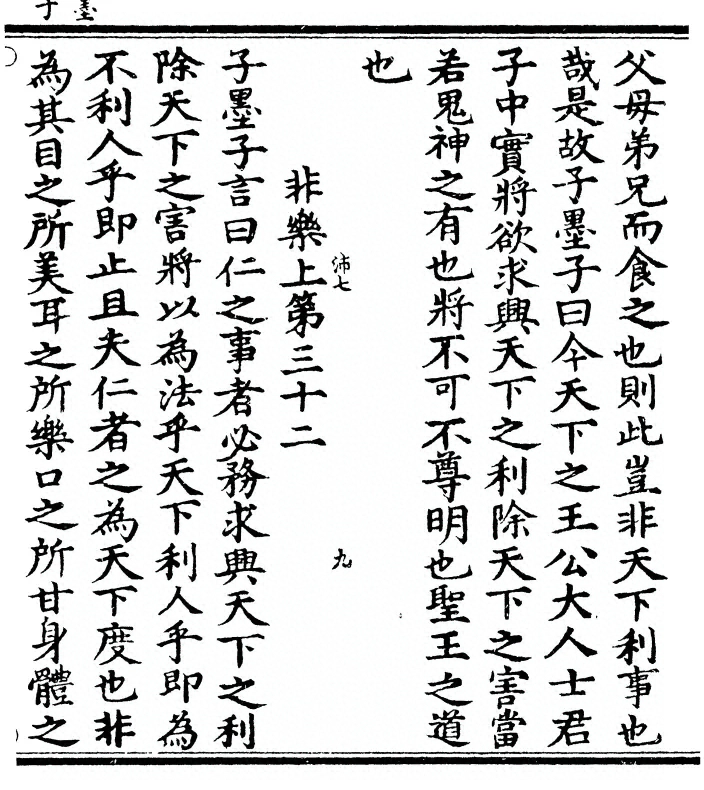 墨子
父母弟兄而食之也則此豈非天下利事也
哉是故子墨子曰今天下之王公大人士君
子中實將欲求興天下之利除天下之害當
若鬼神之有也將不可不尊明也聖王之道
也
沛七
九
非樂上第三十二
子墨子言曰仁之事者必務求興天下之利
除天下之害將以為法乎天下利人乎即為
不利人乎即止且夫仁者之為天下度也非
為其目之所美耳之所樂口之所甘身體之